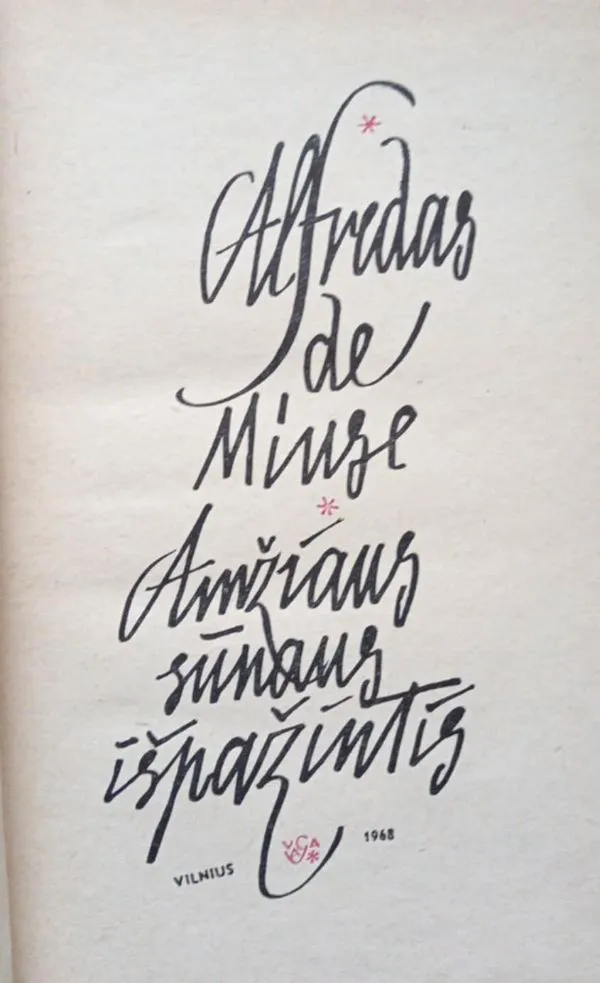 Alfredas
de
Miuse
Amžiaus
sūnaus
išpažintis
VILNIUS
VAGA
1968